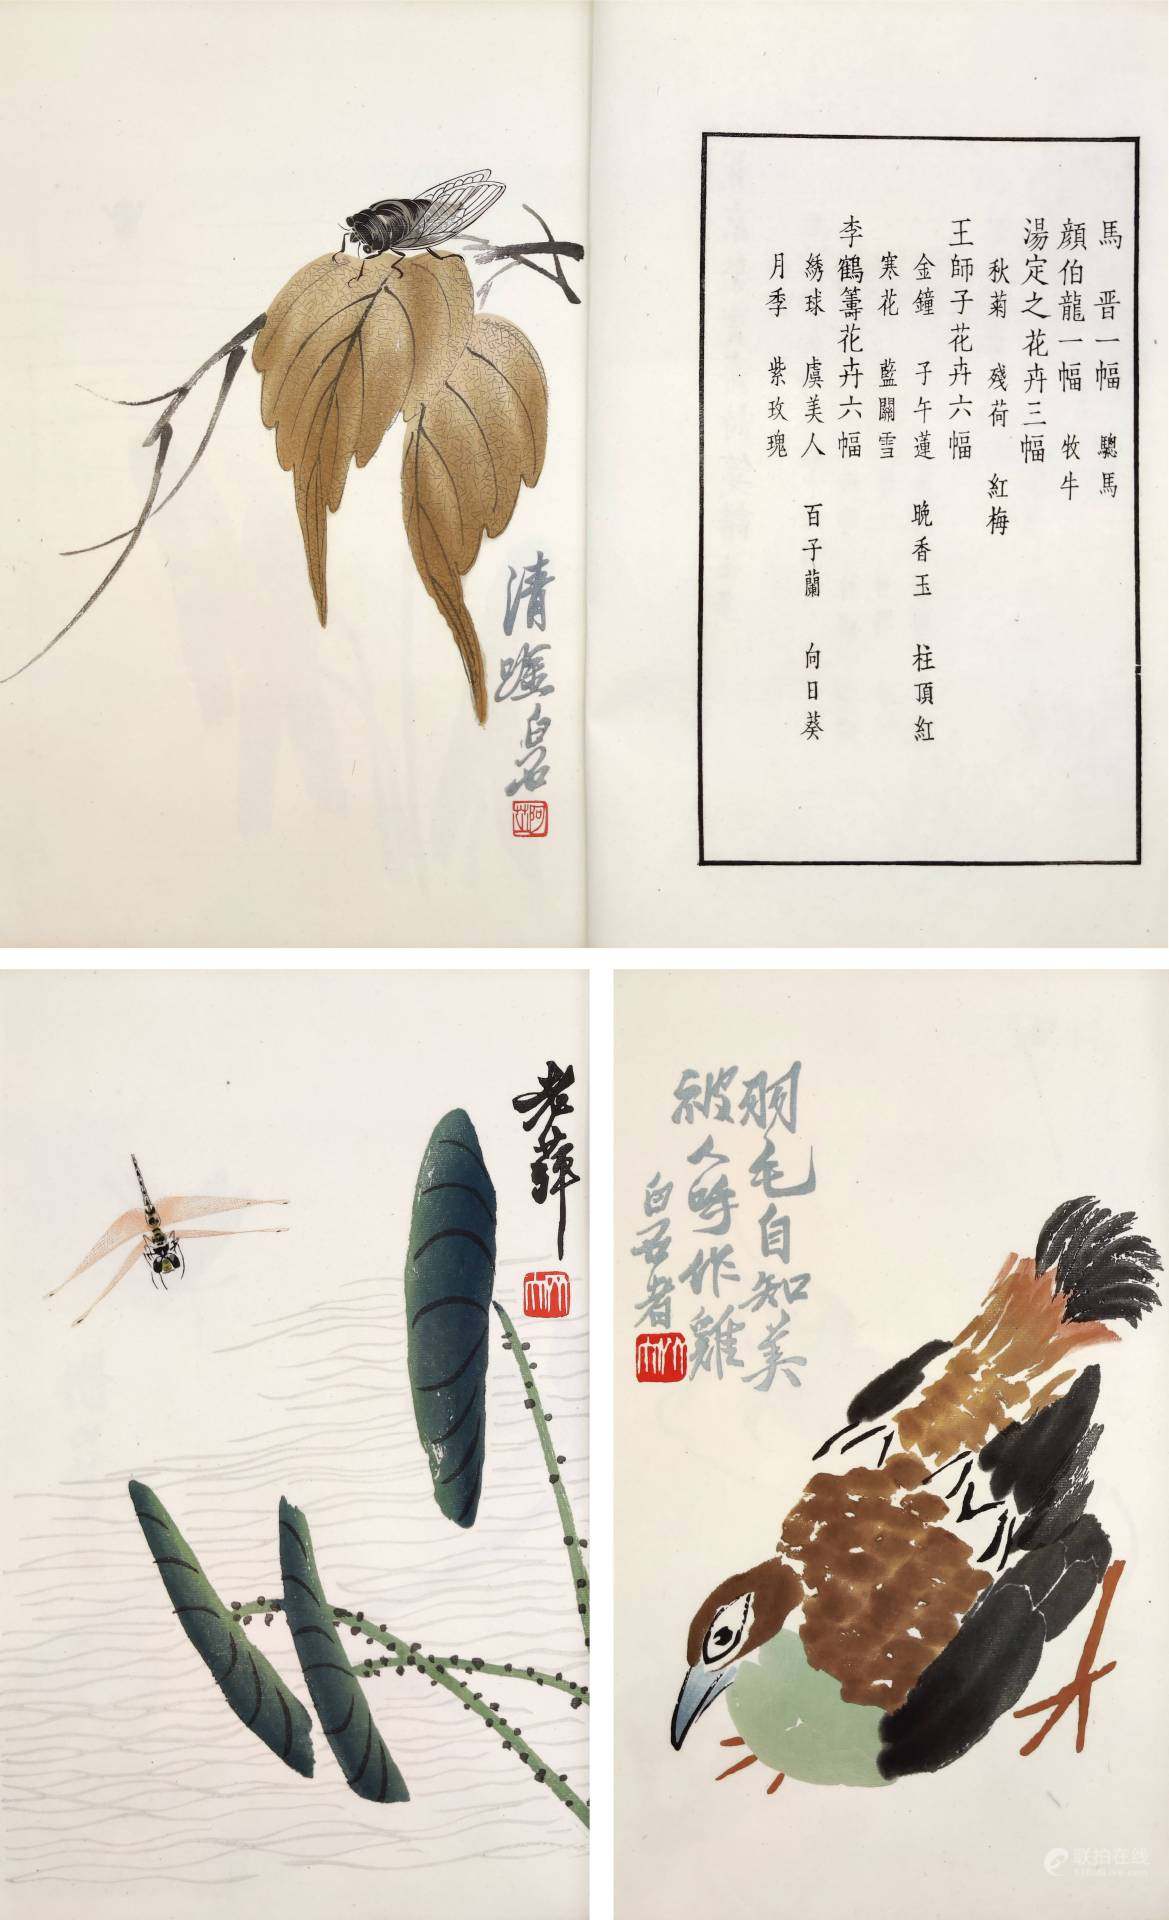 馬晋一幅 驄馬
顔伯龍一幅 牧牛
湯定之花卉三幅
秋菊 殘荷 紅梅
王師子花卉六幅
金鐘 子午蓮 晚香玉 柱頂紅
寒花 藍關雪
李鶴籌花卉六幅
綉球 虞美人 百子蘭 向日葵
月季 紫玫瑰
白石
阿芝
老萍
木人
羽毛自知美
被人呼作雞
白石者
木人
联拍在线